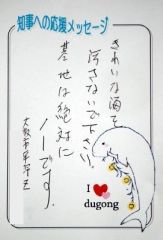 知事への応援メッセージ
きれいな海を
汚さないで下さい。
基地は絶対に
ノーです。
大阪市平野区
I ♥
dugong